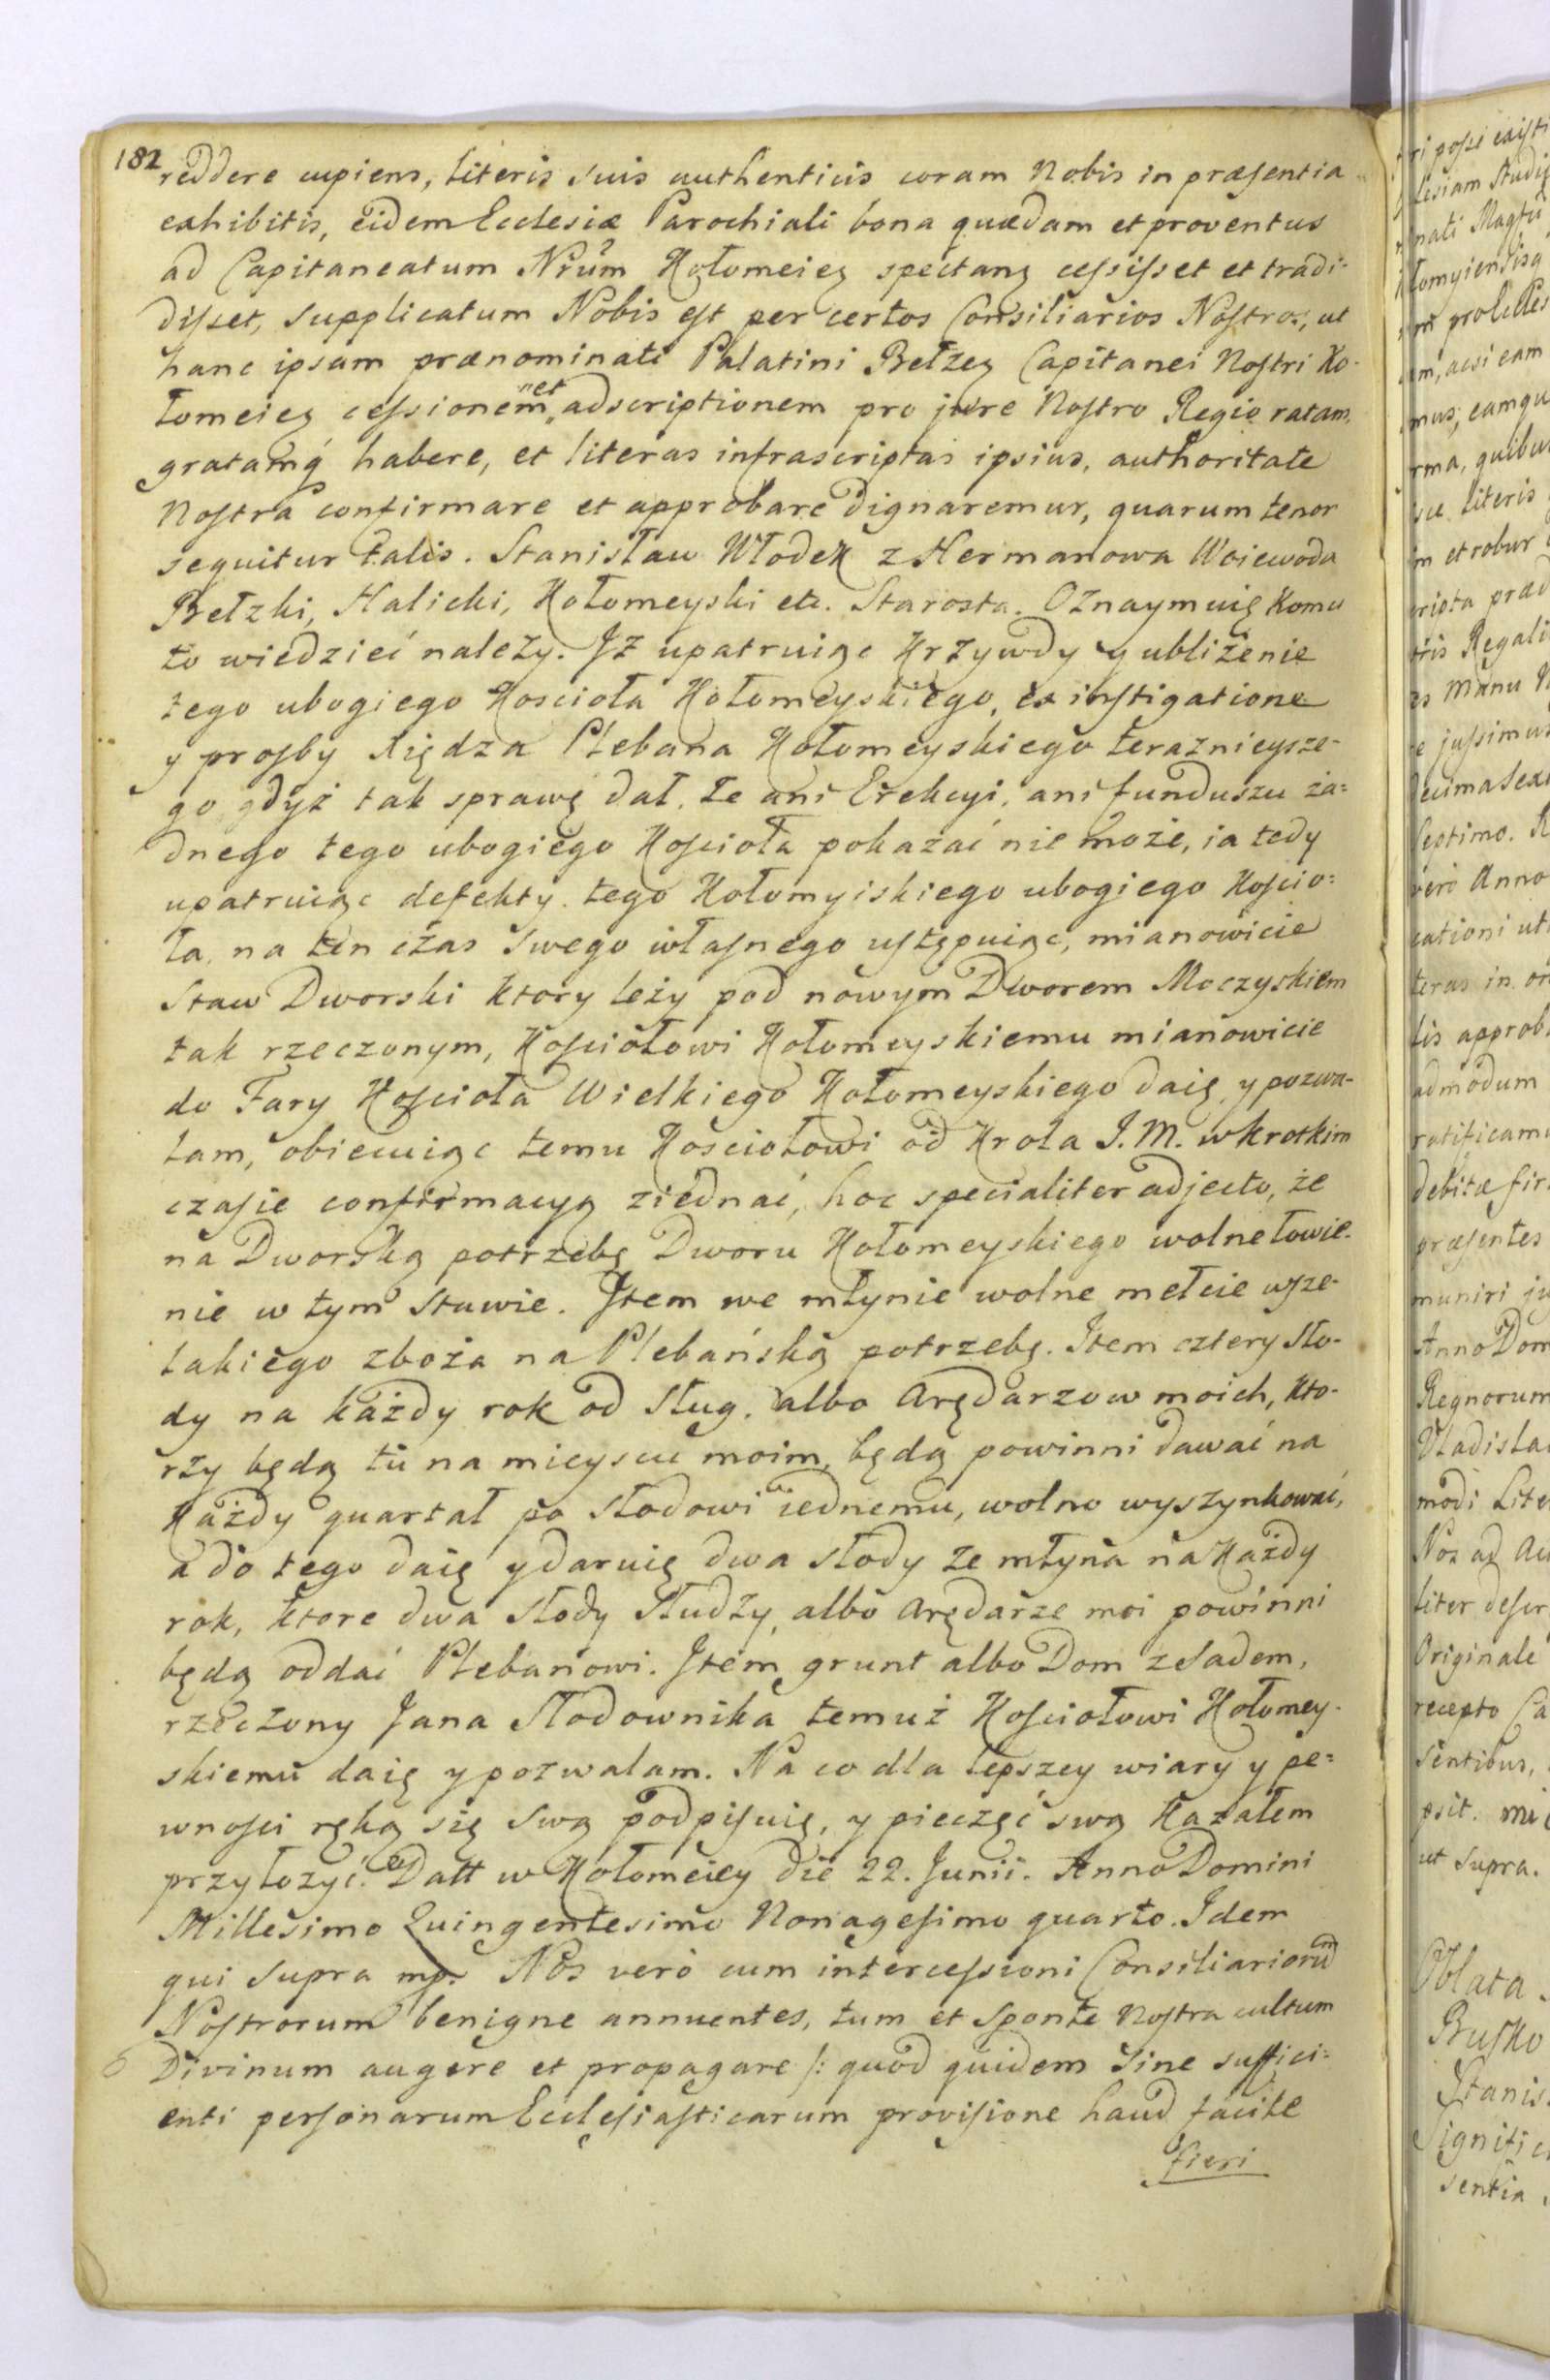 182
reddere cupiens, literis suis authenticis coram Nobis in præsentia
exhibitis, eidem Ecclesiæ Parochiali bona quædam et proventus
ad Capitaneatum Nrum Kołomeien spectan cessisset et tradi-
disset, supplicatum Nobis est per certos Consiliarios Nostros, ut
hanc ipsam prænominati Palatini Bełzen Capitanei Nostri Ko-
łomeien cessionem et adscriptionem pro jure Nostro Regio ratam
gratamq́ habere, et literas infrascriptas ipsius, authoritate
Nostra confirmare et approbare dignaremur, quarum tenor
sequitur talis. Stanisław Włodek z Hermanowa Woiewoda
Bełzki, Halicki, Kołomeyski etc. Starosta. Oznaymuię komu
to wiedzieć należy. Iż upatruiąc krzywdy y ubliżenie
tego ubogiego Kościoła Kołomeyskiego, ex instigatione
y prośby Xiędza Plebana Kołomeyskiego teraznieysze-
go gdyż tak sprawę dał, że ani Erekcyi, ani funduszu ża=
dnego tego ubogiego Kościoła pokazać nie może, ia tedy
upatruiąc defekty tego Kołomyiskiego ubogiego Kościo=
ła, na ten czas swego własnego ustępuiąc, mianowicie
Staw Dworski ktory leży pod nowym Dworem Moczyskiem
tak rzeczonym, Kościołowi Kołomeyskiemu mianowicie
do Fary Kościoła Wielkiego Kołomeyskiego daię, y pozwa-
lam, obiecuiąc temu Kościołowi od Krola J. M. w krotkim
czasie confirmacyą ziednać, hoc specialiter adjecto, że
na Dworską potrzebę Dworu Kołomeyskiego wolne łowie-
nie w tym Stawie. Item we młynie wolne mełcie wsze-
lakiego zboża na Plebańską potrzebę. Item cztery Sło-
dy na każdy rok od Sług, albo Arędarzow moich, kto-
rzy będą tu na mieyscu moim, będą powinni dawać na
Każdy quartał po Słodowi iednemu, wolno wyszynkować,
a do tego daię y daruię dwa słody ze młyna na Każdy
rok, ktore dwa Słody Słudzy, albo Arędarze moi powinni
będą oddać Plebanowi. Item grunt albo Dom z Sadem,
rzeczony Jana Słodownika temuż Kościołowi Kołomey-
skiemu daię y pozwalam. Na co dla lepszey wiary y pe=
wności ręką się swą podpisuię, y pieczęć swą Kazałem
przyłożyć. Datt w Kołomeiey die 22. Junii. Anno Domini
Millesimo Quingentesimo Nonagesimo quarto. Idem
qui supra mp. Nos verò cum intercessioni Consiliariorum
Nostrorum benigne annuentes, tum et sponte Nostra cultum
Divinum augere et propagare /: quod quidem sine suffici=
enti personarum Ecclesiasticarum provisione haud facile
fieri